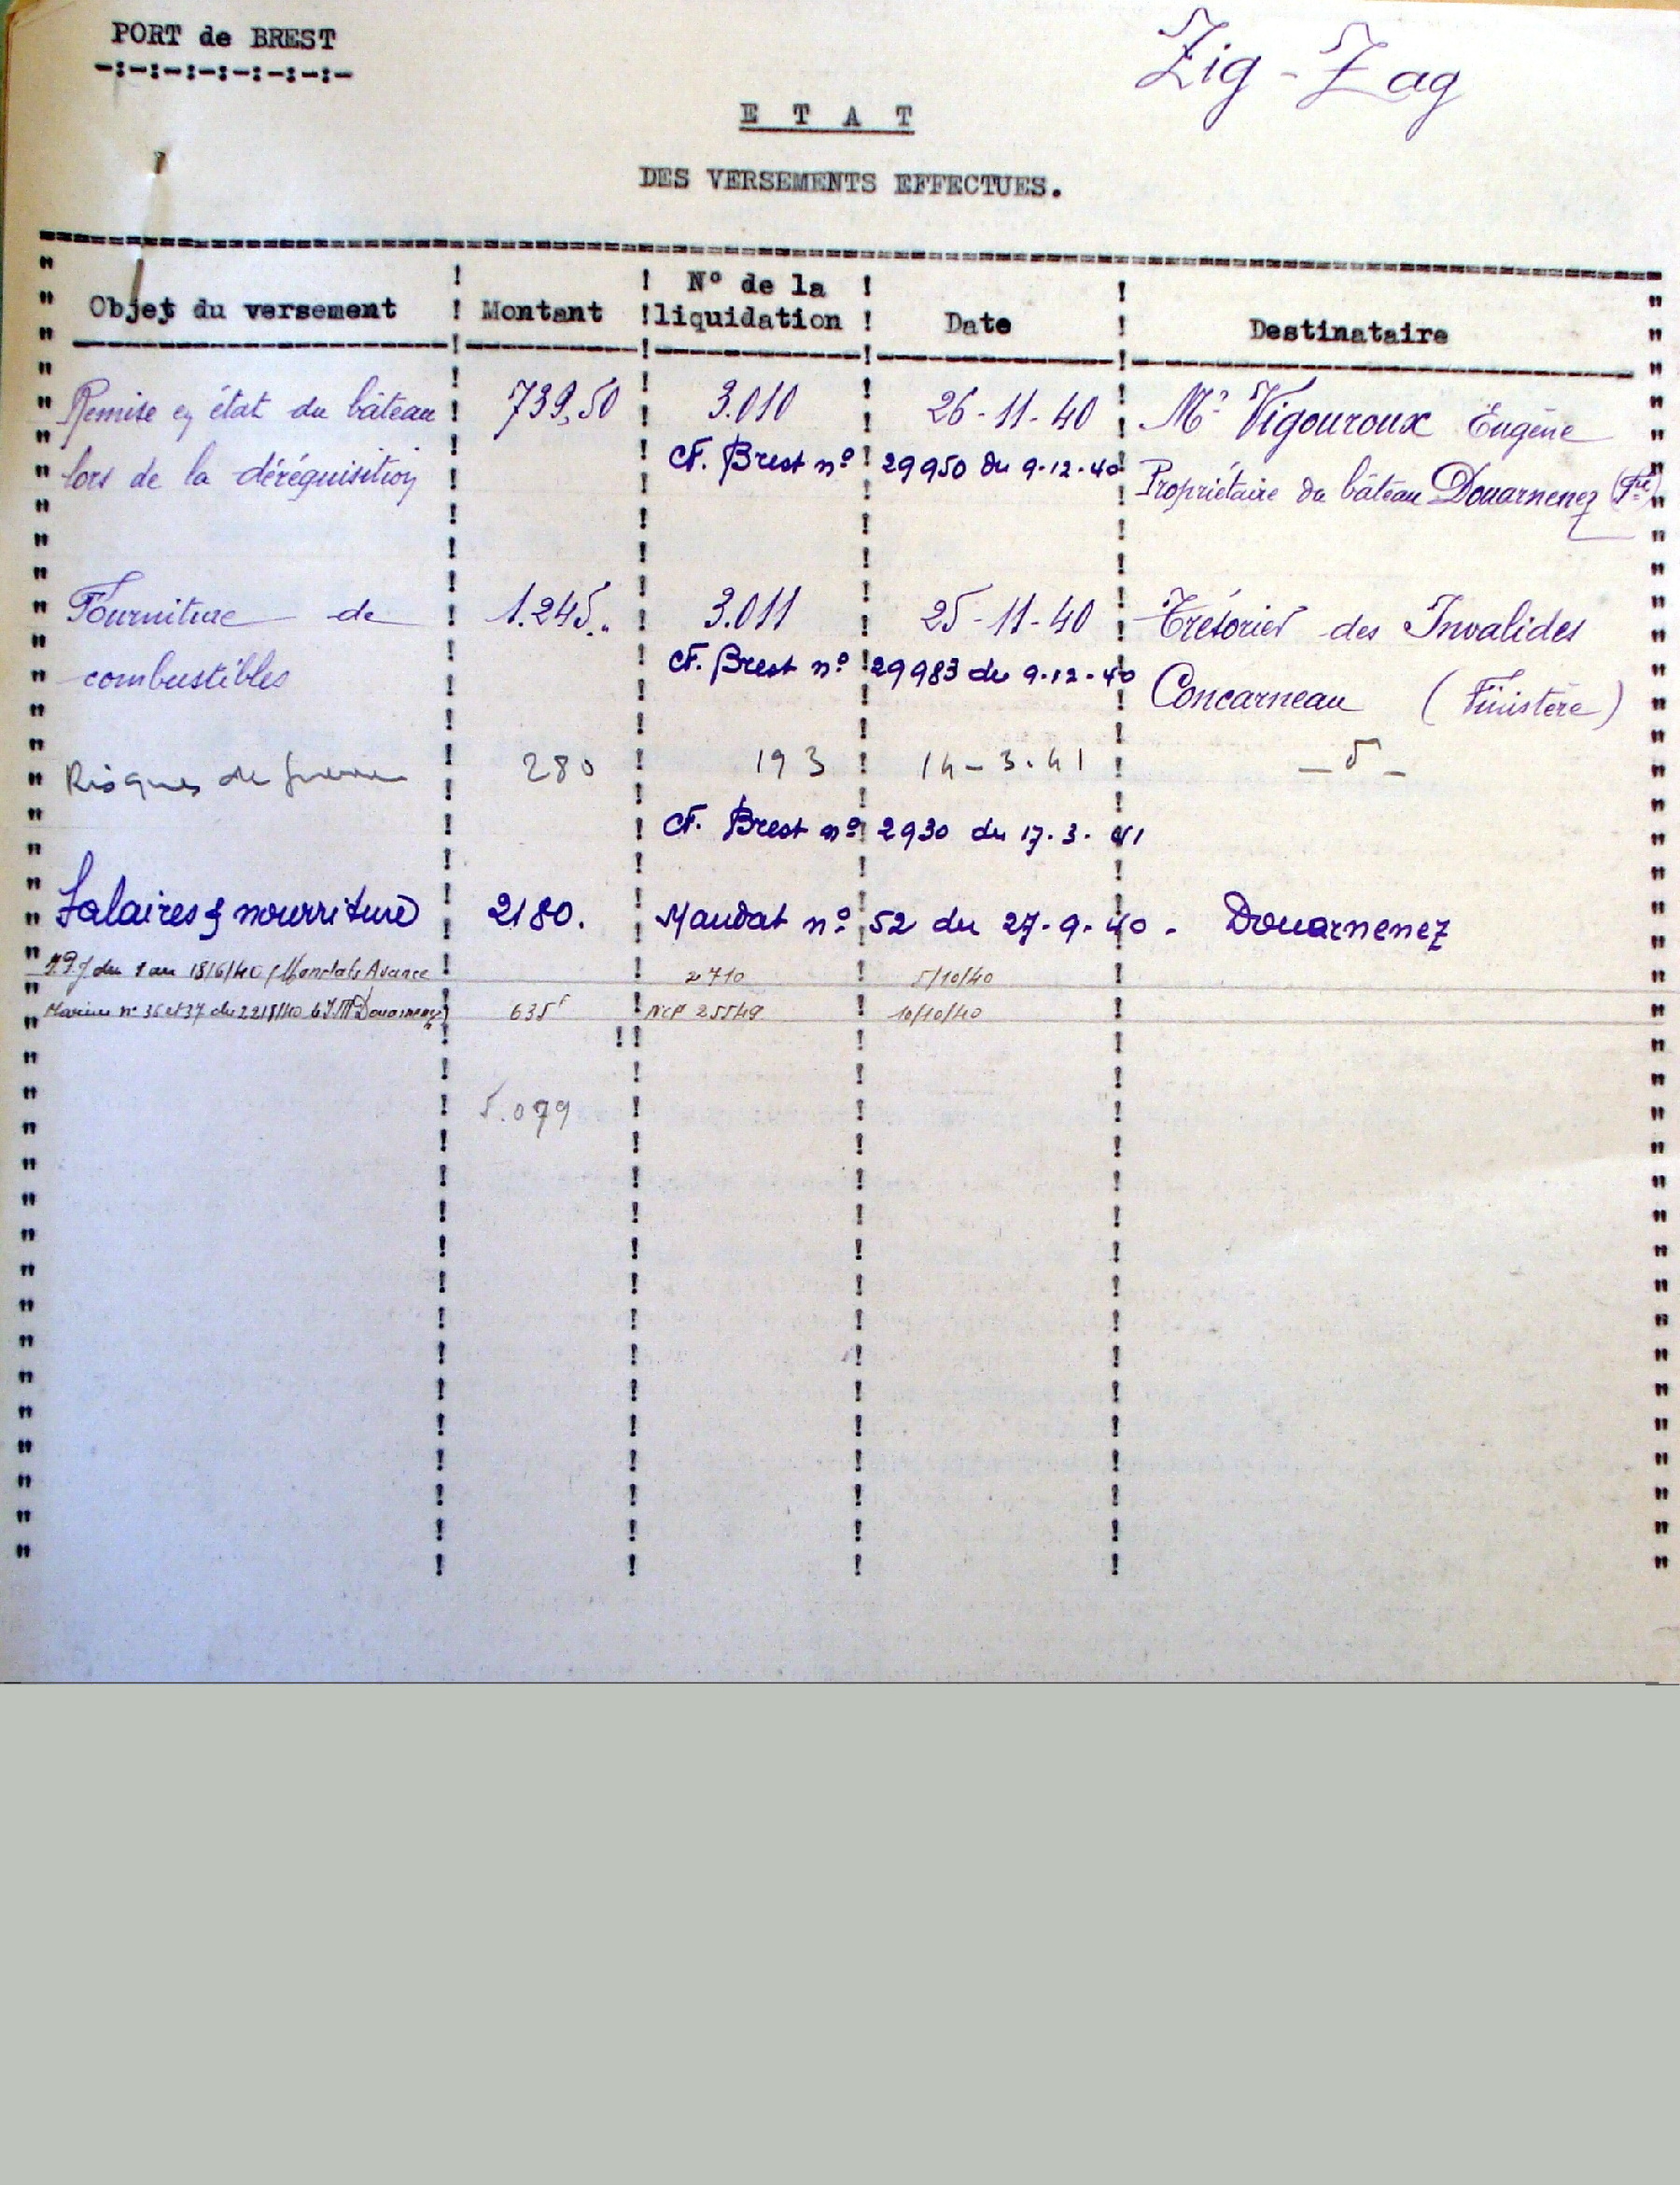 PORT de BREST
Zig-Zag
E T A T
DES VERSEMENTS EFFECTUES.
Objet du versement ! Montant ! N° de la liquidation ! Date ! Destinataire
Remise en état du bâteau 739,50 3.010 26-11-40 Mr Vigouroux Eugène
lors de la déréquisition CF. Brest n° 29950 du 9-12-40 Propriétaire du bâteau Douarnenez
Fourniture de 1.245,, 3.011 25-11-40 Trésorier des Invalides
combustibles CF. Brest n° 29983 du 9-12-40 Concarneau (Finistère)
Risques de guerre 280 193 14-3-41
CF. Brest n° 2930 du 17-3-41
Salaires & nourriture 2180. Mandat n° 52 du 27-9-40 - Douarnenez
du 1 au 18/6/40 Mandats Avance 2710 5/10/40
Marine n° 36 et 37 du 22/8/40 Douarnenez 635 25549 10/10/40
5.079